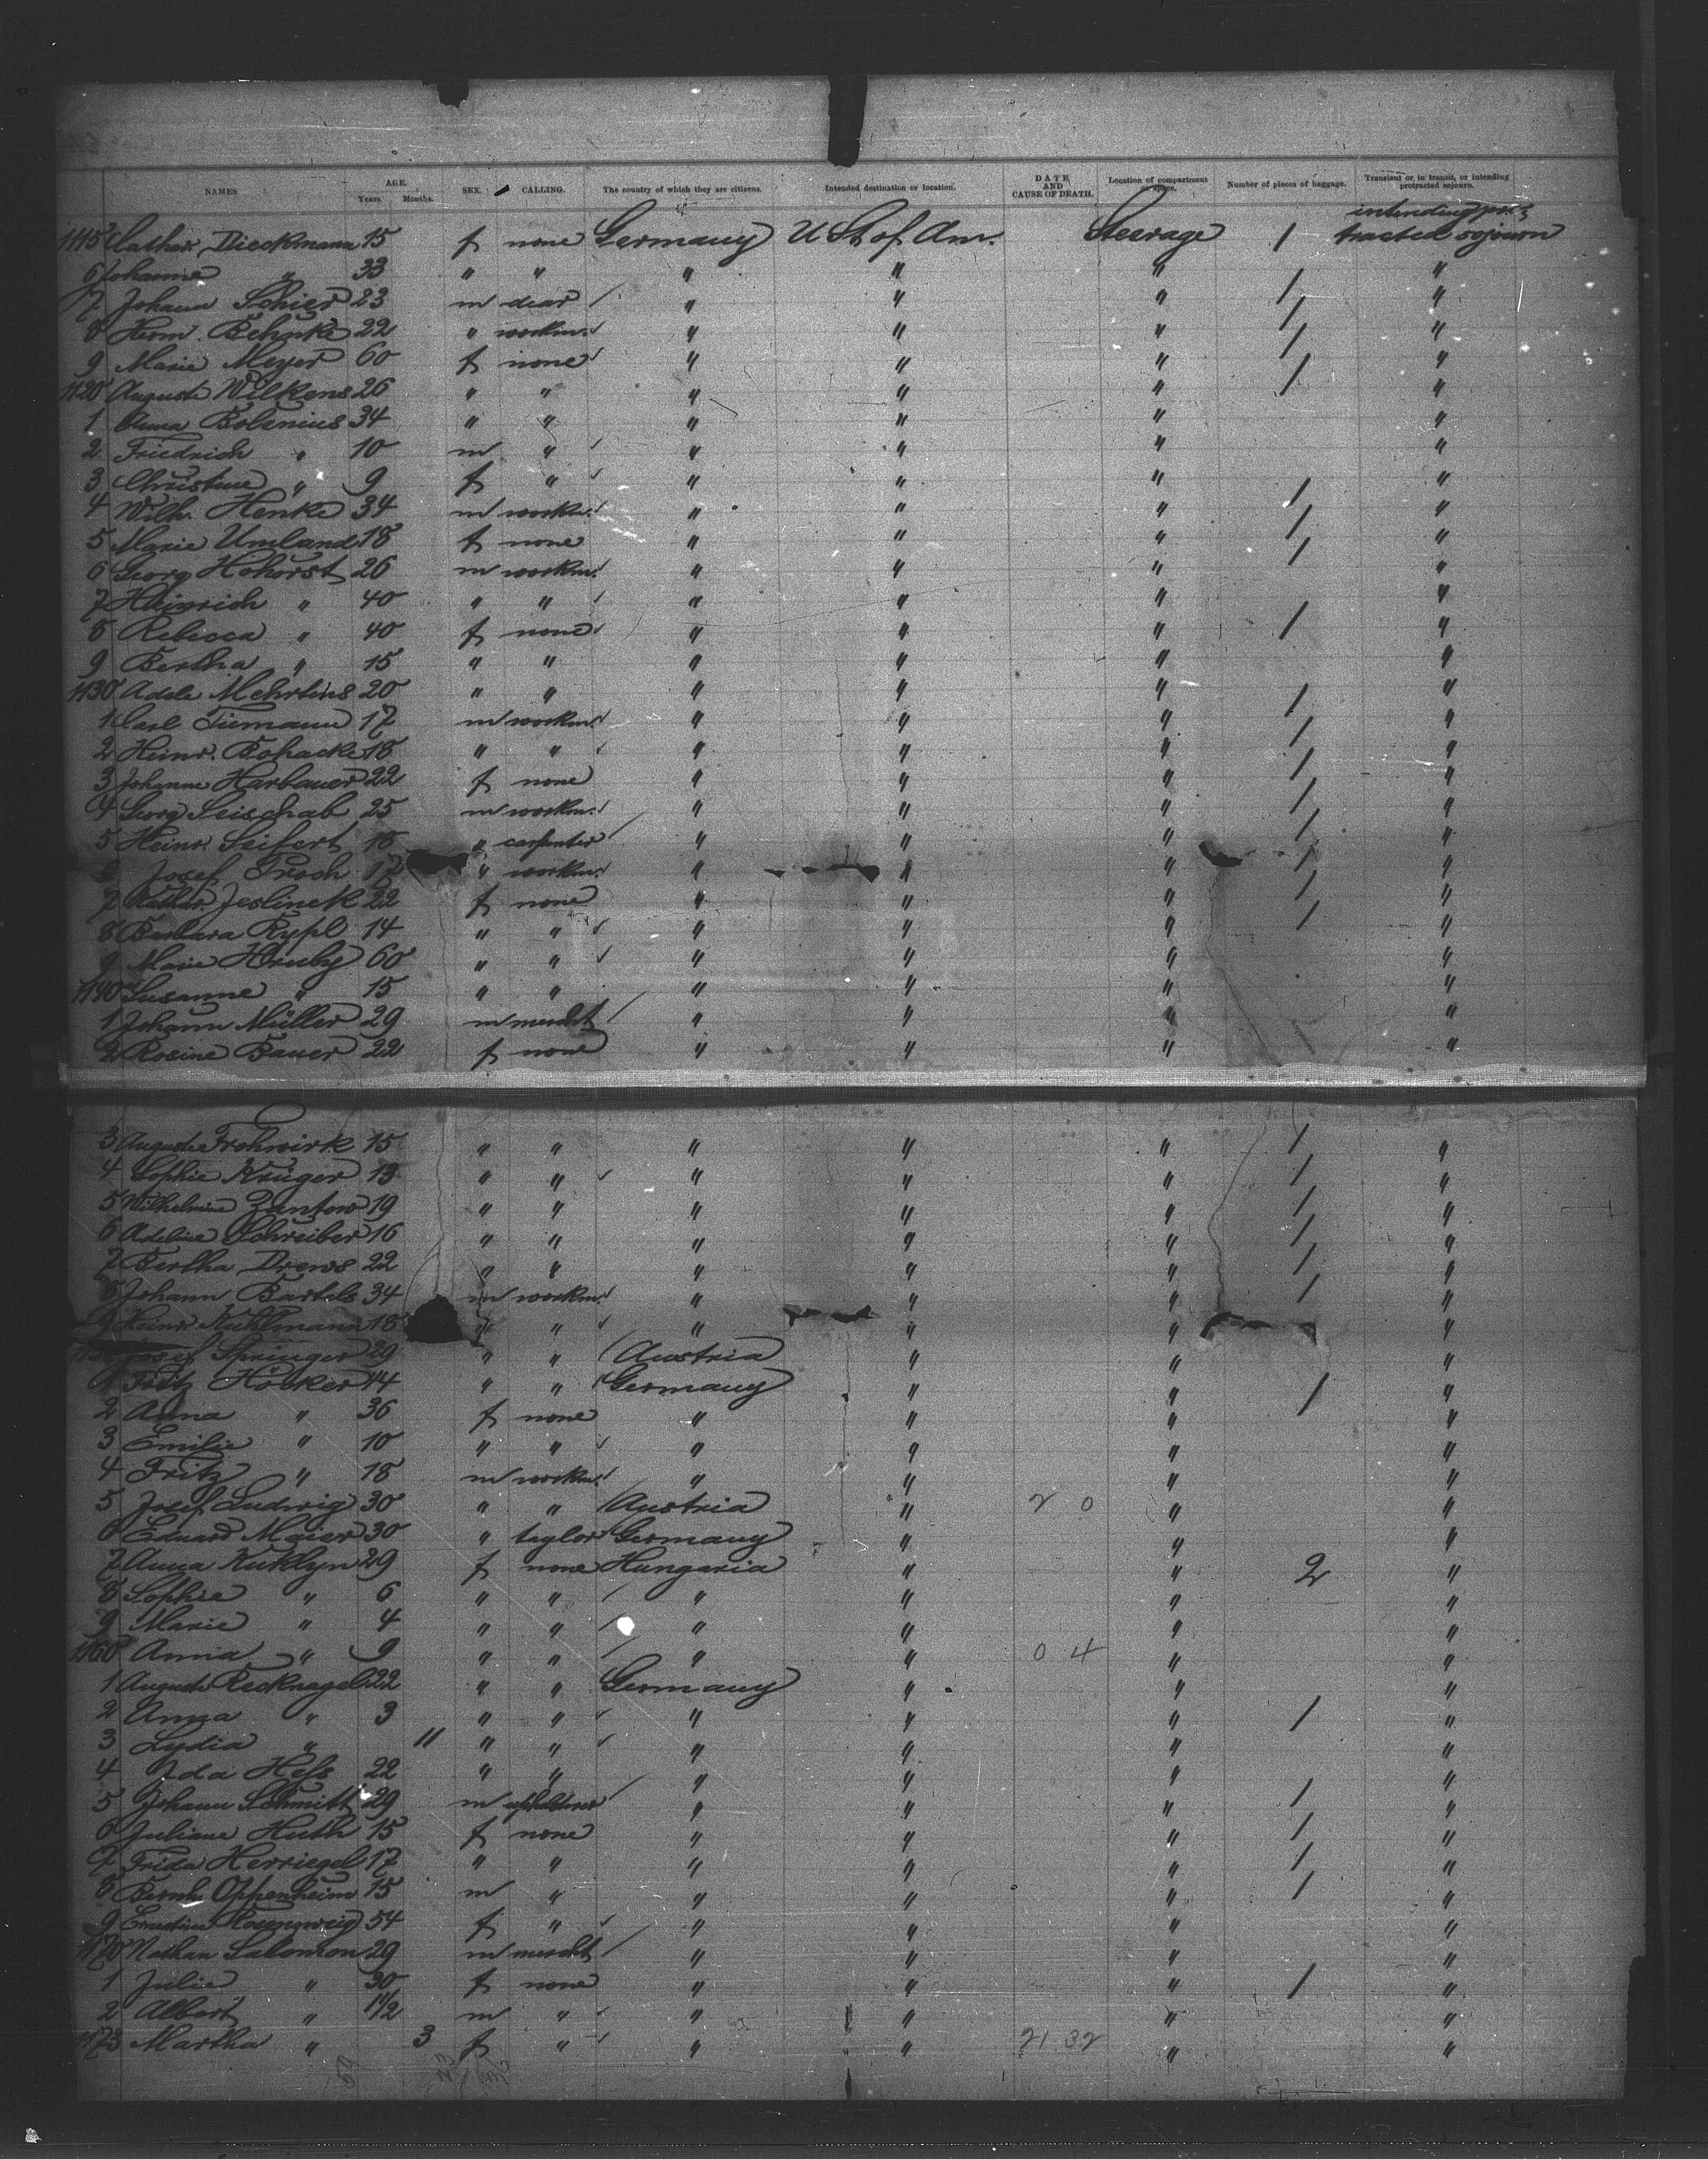 NAMES AGE. Years. Months. SEX. CALLING. The country of which they are citizens. Intended destination or location. DATE AND CAUSE OF DEATH. Location of compartment or space. Number of pieces of baggage. Transient or, in transit, or intending protracted sojourn.
1115 Cathar. Dieckmann 15 f none Germany U St of Am. Steerage / intending pro- tracted sojourn
6 Johanne " 33 " " " " " "
7 Johann Schier 23 m " " " / "
8 Herm. Behnke 22 " workm. " " " / "
9 Marie Meyer 60 f none " " " / "
1120 Auguste Wilkens 26 " " " " " / "
1 Anna Bolenius 34 " " " " " "
2 Friedrich " 10 m " " " " "
3 Christine " 9 f " " " " "
4 Wilh. Henke 34 m workm. " " " / "
5 Marie Umland 18 f none " " " / "
6 Georg Hohorst 26 m workm. " " " / "
7 Heinrich " 40 " " " " " "
8 Rebecca " 40 f none " " " / "
9 Bertha " 15 " " " " " "
1130 Adele Mehrtens 20 " " " " " / "
1 Carl Tiemann 17 m workm. " " " / "
2 Heinr. Bohacke 18 " " " " " / "
3 Johanne Harbauer 22 f none " " " / "
4 Georg Leischab 25 m workm. " " " / "
5 Heinr. Seifert 16 " carpenter " " " / "
6 Josef Proch 17 " workm. " " " / "
7 Kathar. Jeslinek 22 f none " " " / "
8 Barbara Rypl 14 " " " " " / "
9 Marie Hruby 60 " " " " " "
1140 Susanne " 15 " " " " " "
1 Johann Müller 29 m mercht " " " "
2 Rosine Bauer 22 f none " " " "
3 Auguste Frohwirk 15 " " " " " / "
4 Sophie Krüger 13 " " " " " / "
5 Wilhelmine Zantow 19 " " " " " / "
6 Adeline Schreiber 16 " " " " " / "
7 Bertha Drews 22 " " " " " / "
8 Johann Bartels 34 m workm. " " " / "
9 Heinr. Kuhlmann 18 " " " " " "
Josef Springer 29 " " Austria " " "
1 Fritz Höcker 44 " " Germany " " / "
2 Anna " 36 f none " " " "
3 Emilie " 10 " " " " " "
4 Fritz " 18 m workm. " " " "
5 Josef Ludwig 30 " " Austria " 2 0 " "
6 Eduard Maier 30 " taylor Germany " " "
7 Anna Kuklyn 29 f none Hungaria " " 2 "
8 Sophie " 6 " " " " " "
9 Marie " 4 " " " " " "
1160 Anna " 9 " " " " 0 4 " "
1 Auguste Recknagel 22 " " Germany " " "
2 Anna " 3 " " " " " / "
3 Lydia " 11 " " " " " "
4 Ida Hess 22 " " " " " "
5 Johann Schmitt 29 m " " " / "
6 Juliane Huth 15 f none " " " / "
7 Frida Herriegel 17 " " " " " / "
8 Bernh. Oppenheim 15 m " " " " / "
9 Ernestine Rosenzweig 54 f " " " " "
1170 Nathan Salomon 29 m mercht " " " "
1 Julie " 30 f none " " " / "
2 Albert " 1 1/2 m " " " " "
1173 Martha " 3 f " " " 21 32 " "